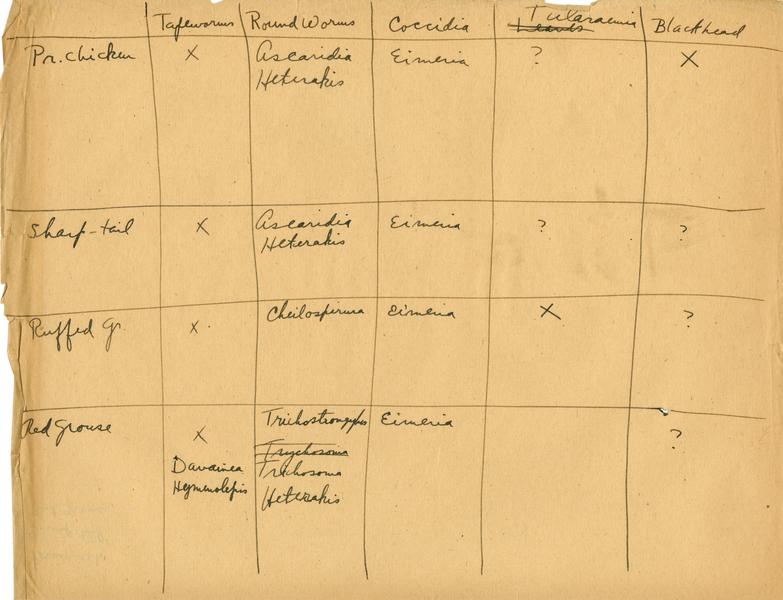 Tapeworms Round Worms Coccidia Tularaemia Blackhead
Pr. Chicken X Ascaridia Eimeria ? X
Heterakis
Sharp-tail X Ascaridia Eimeria ? ?
Heterakis
Ruffed Gr. X Cheilospirura Eimeria X ?
Red Grouse X Trichostrongylus Eimeria ?
Trychosoma
Davainea Trichosoma
Hymenolepis Heterakis